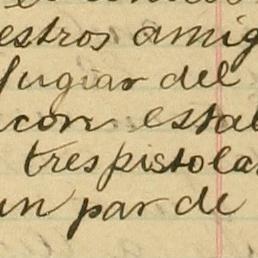 estros amig
fugiar del
con estab
tres pistolas
un par de